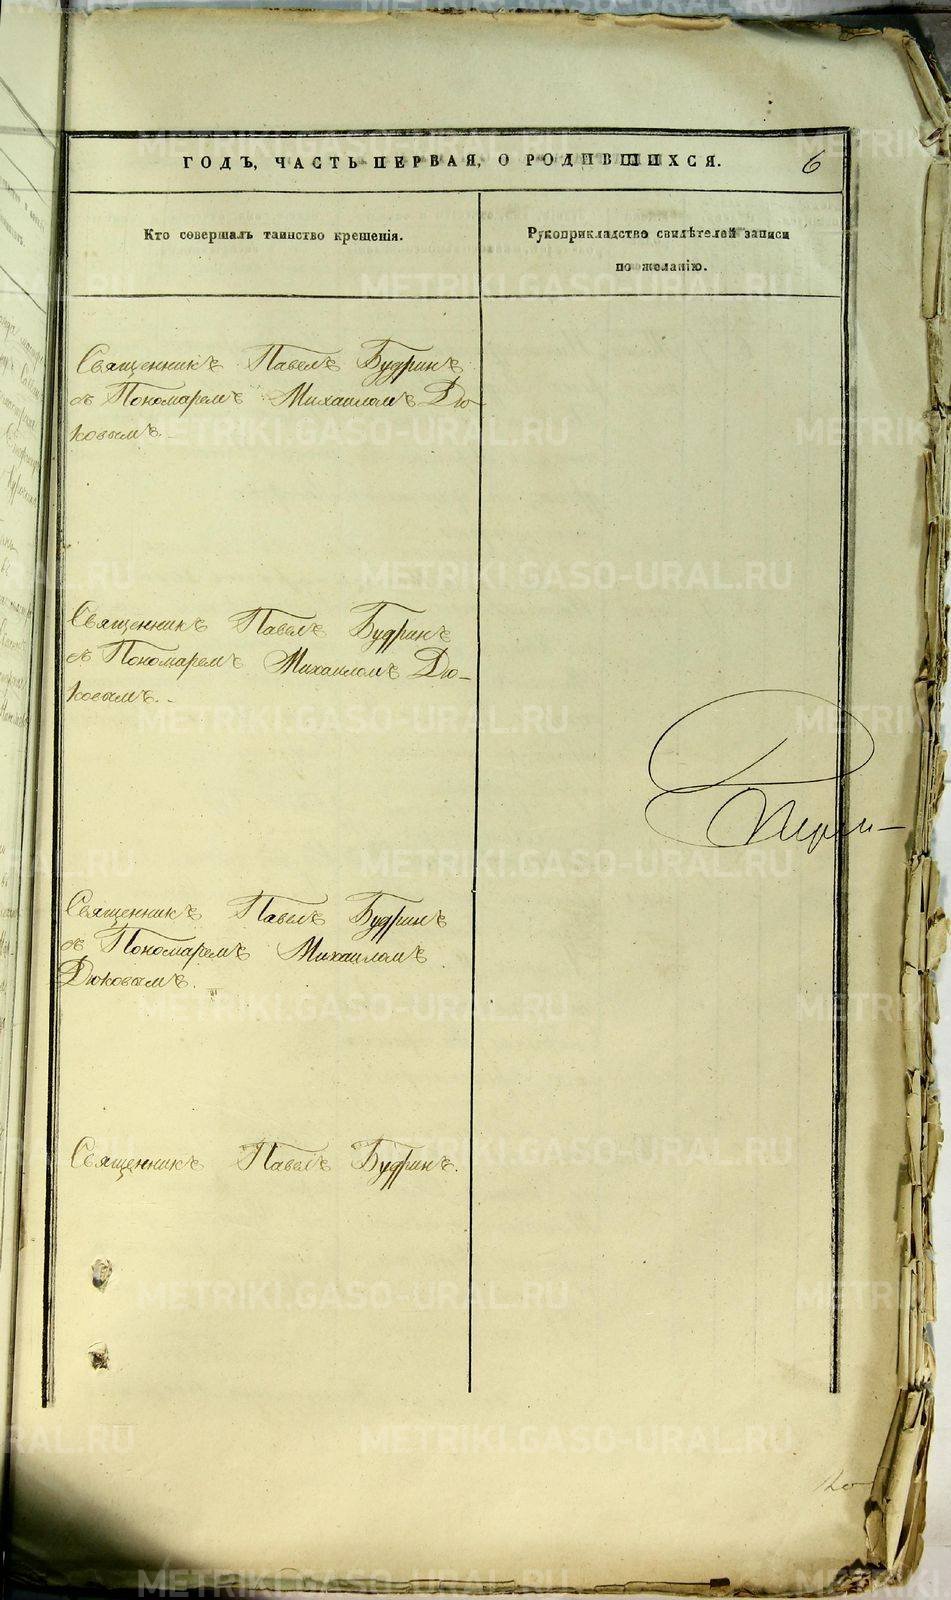 ГОДЪ, ЧАСТЬ ПЕРВАЯ, О РОДИВШИХСЯ.
6
Кто совершалъ таинство крещенія.
Рукоприкладство свидѣтелей записи
по желанію.
Священникъ Павелъ Будринъ
съ Пономаремъ Михаиломъ Дю-
ковымъ.
Священникъ Павелъ Будринъ
съ Пономаремъ Михаиломъ Дю-
ковымъ.
Священникъ Павелъ Будринъ
съ Пономаремъ Михаиломъ
Дюковымъ.
Священникъ Павелъ Будринъ.
METRIKI.GASO-URAL.RU